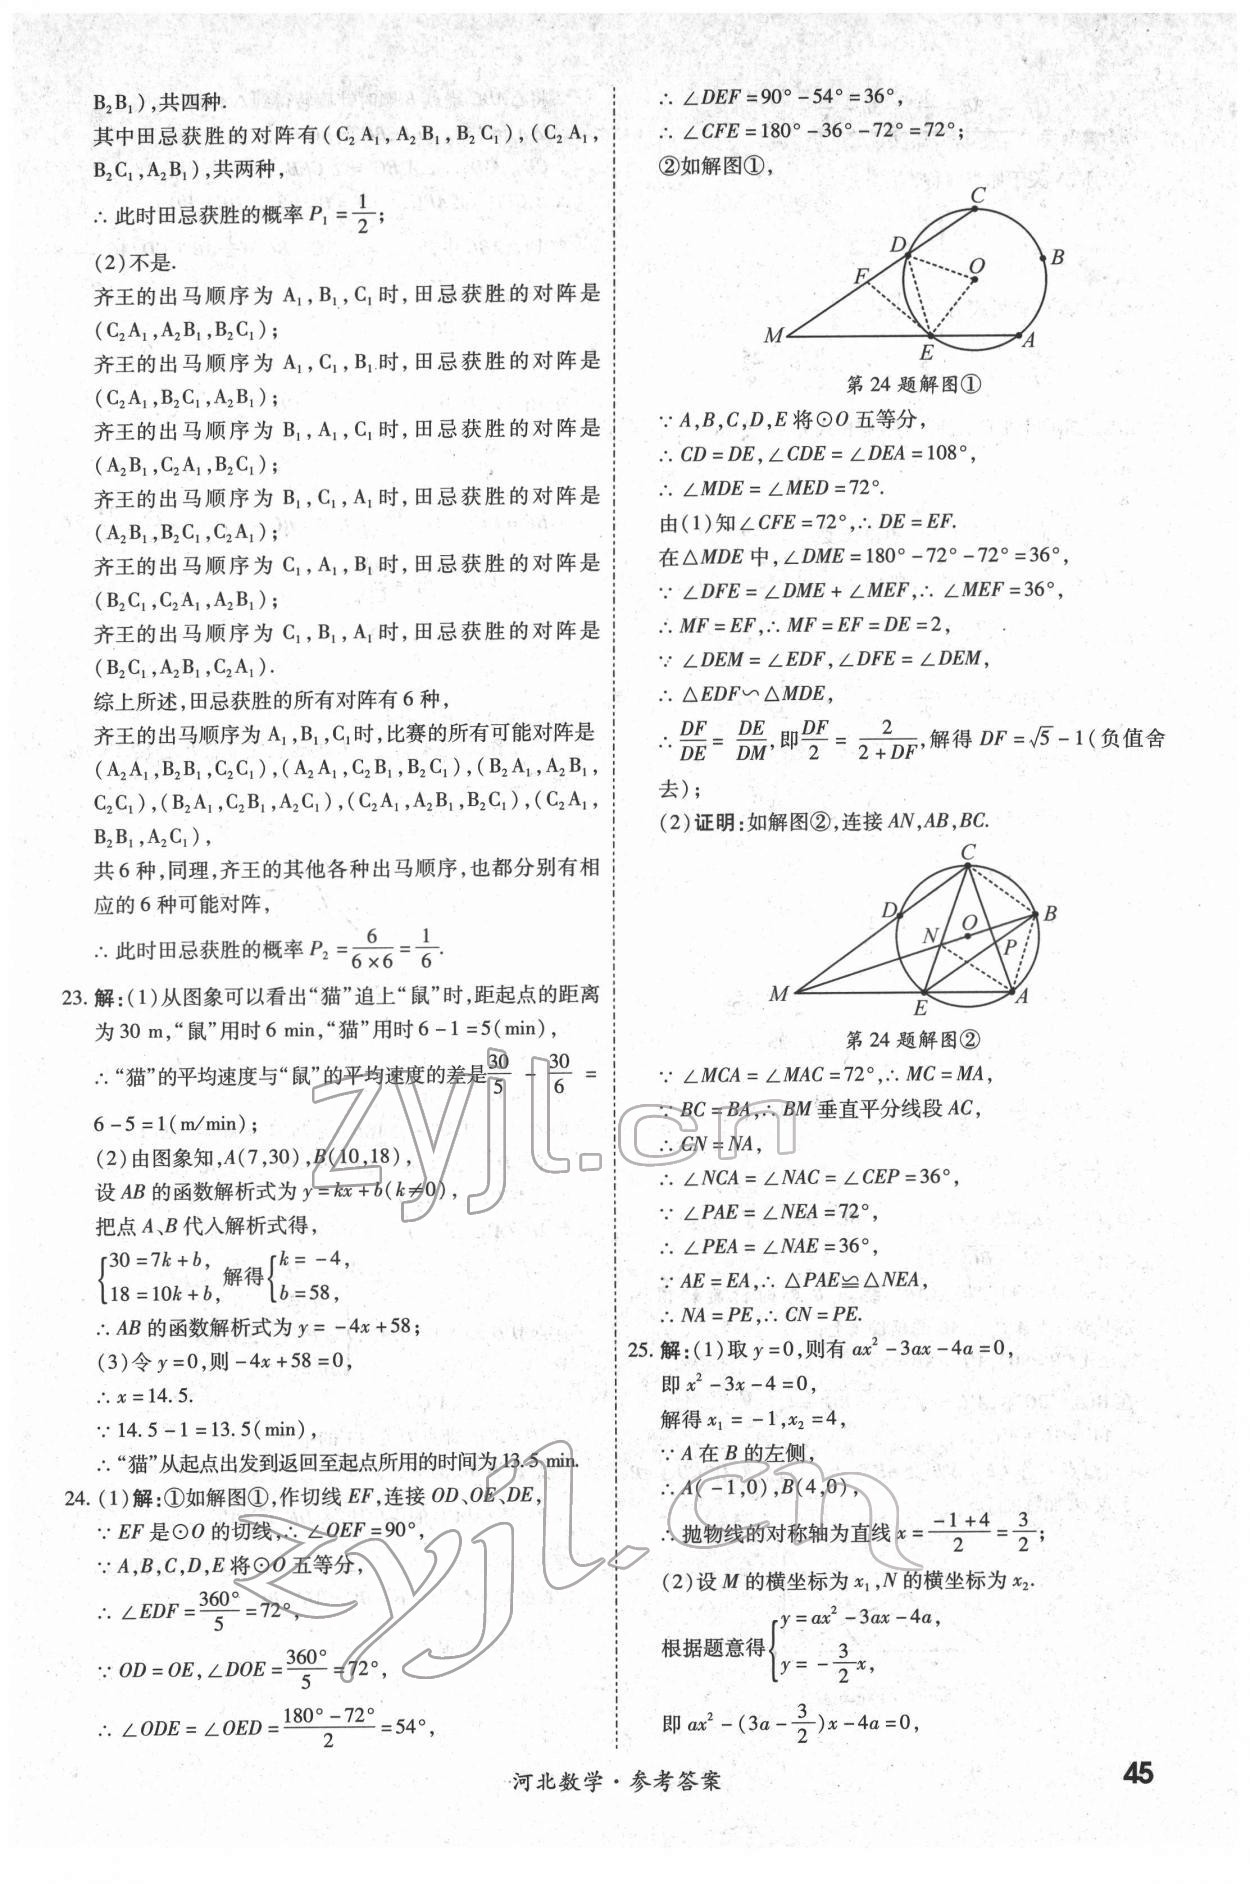 B₂B₁),共四种.
其中田忌获胜的对阵有(C₂A₁,A₂B₁,B₂C₁),(C₂A₁,
B₂C₁,A₂B₁),共两种,
∴此时田忌获胜的概率P₁=1/2;
(2)不是.
齐王的出马顺序为A₁,B₁,C₁时,田忌获胜的对阵是
(C₂A₁,A₂B₁,B₂C₁);
齐王的出马顺序为A₁,C₁,B₁时,田忌获胜的对阵是
(C₂A₁,B₂C₁,A₂B₁);
齐王的出马顺序为B₁,A₁,C₁时,田忌获胜的对阵是
(A₂B₁,C₂A₁,B₂C₁);
齐王的出马顺序为B₁,C₁,A₁时,田忌获胜的对阵是
(A₂B₁,B₂C₁,C₂A₁);
齐王的出马顺序为C₁,A₁,B₁时,田忌获胜的对阵是
(B₂C₁,C₂A₁,A₂B₁);
齐王的出马顺序为C₁,B₁,A₁时,田忌获胜的对阵是
(B₂C₁,A₂B₁,C₂A₁).
综上所述,田忌获胜的所有对阵有6种,
齐王的出马顺序为A₁,B₁,C₁时,比赛的所有可能对阵是
(A₂A₁,B₂B₁,C₂C₁),(A₂A₁,C₂B₁,B₂C₁),(B₂A₁,A₂B₁,
C₂C₁),(B₂A₁,C₂B₁,A₂C₁),(C₂A₁,A₂B₁,B₂C₁),(C₂A₁,
B₂B₁,A₂C₁),
共6种,同理,齐王的其他各种出马顺序,也都分别有相
应的6种可能对阵,
∴此时田忌获胜的概率P₂=6/(6×6)=1/6.
23.解:(1)从图象可以看出“猫”追上“鼠”时,距起点的距离
为30 m,“鼠”用时6 min,“猫”用时6-1=5(min),
∴“猫”的平均速度与“鼠”的平均速度的差是30/5-30/6=
6-5=1(m/min);
(2)由图象知,A(7,30),B(10,18),
设AB的函数解析式为y=kx+b(k≠0),
把点A、B代入解析式得,
{30=7k+b, 18=10k+b, 解得{k=-4, b=58,
∴AB的函数解析式为y=-4x+58;
(3)令y=0,则-4x+58=0,
∴x=14.5.
∵14.5-1=13.5(min),
∴“猫”从起点出发到返回至起点所用的时间为13.5 min.
24.(1)解:①如解图①,作切线EF,连接OD、OE、DE,
∵EF是⊙O的切线,∴∠OEF=90°,
∵A,B,C,D,E将⊙O五等分,
∴∠EDF=360°/5=72°,
∵OD=OE,∠DOE=360°/5=72°,
∴∠ODE=∠OED=(180°-72°)/2=54°,
∴∠DEF=90°-54°=36°,
∴∠CFE=180°-36°-72°=72°;
②如解图①,
C
D
B
F
O
M
E
A
第24题解图①
∵A,B,C,D,E将⊙O五等分,
∴CD=DE,∠CDE=∠DEA=108°,
∴∠MDE=∠MED=72°.
由(1)知∠CFE=72°,∴DE=EF.
在△MDE中,∠DME=180°-72°-72°=36°,
∵∠DFE=∠DME+∠MEF,∴∠MEF=36°,
∴MF=EF,∴MF=EF=DE=2,
∵∠DEM=∠EDF,∠DFE=∠DEM,
∴△EDF∽△MDE,
∴DF/DE=DE/DM,即DF/2=2/(2+DF),解得DF=√5-1(负值舍
去);
(2)证明:如解图②,连接AN,AB,BC.
C
D
B
N
O
P
M
E
A
第24题解图②
∵∠MCA=∠MAC=72°,∴MC=MA,
∵BC=BA,∴BM垂直平分线段AC,
∴CN=NA,
∴∠NCA=∠NAC=∠CEP=36°,
∵∠PAE=∠NEA=72°,
∴∠PEA=∠NAE=36°,
∵AE=EA,∴△PAE≌△NEA,
∴NA=PE,∴CN=PE.
25.解:(1)取y=0,则有ax²-3ax-4a=0,
即x²-3x-4=0,
解得x₁=-1,x₂=4,
∵A在B的左侧,
∴A(-1,0),B(4,0),
∴抛物线的对称轴为直线x=(-1+4)/2=3/2;
(2)设M的横坐标为x₁,N的横坐标为x₂.
根据题意得{y=ax²-3ax-4a, y=-3/2x,
即ax²-(3a-3/2)x-4a=0,
河北数学·参考答案
45
zyjl.cn
zyjl.cn